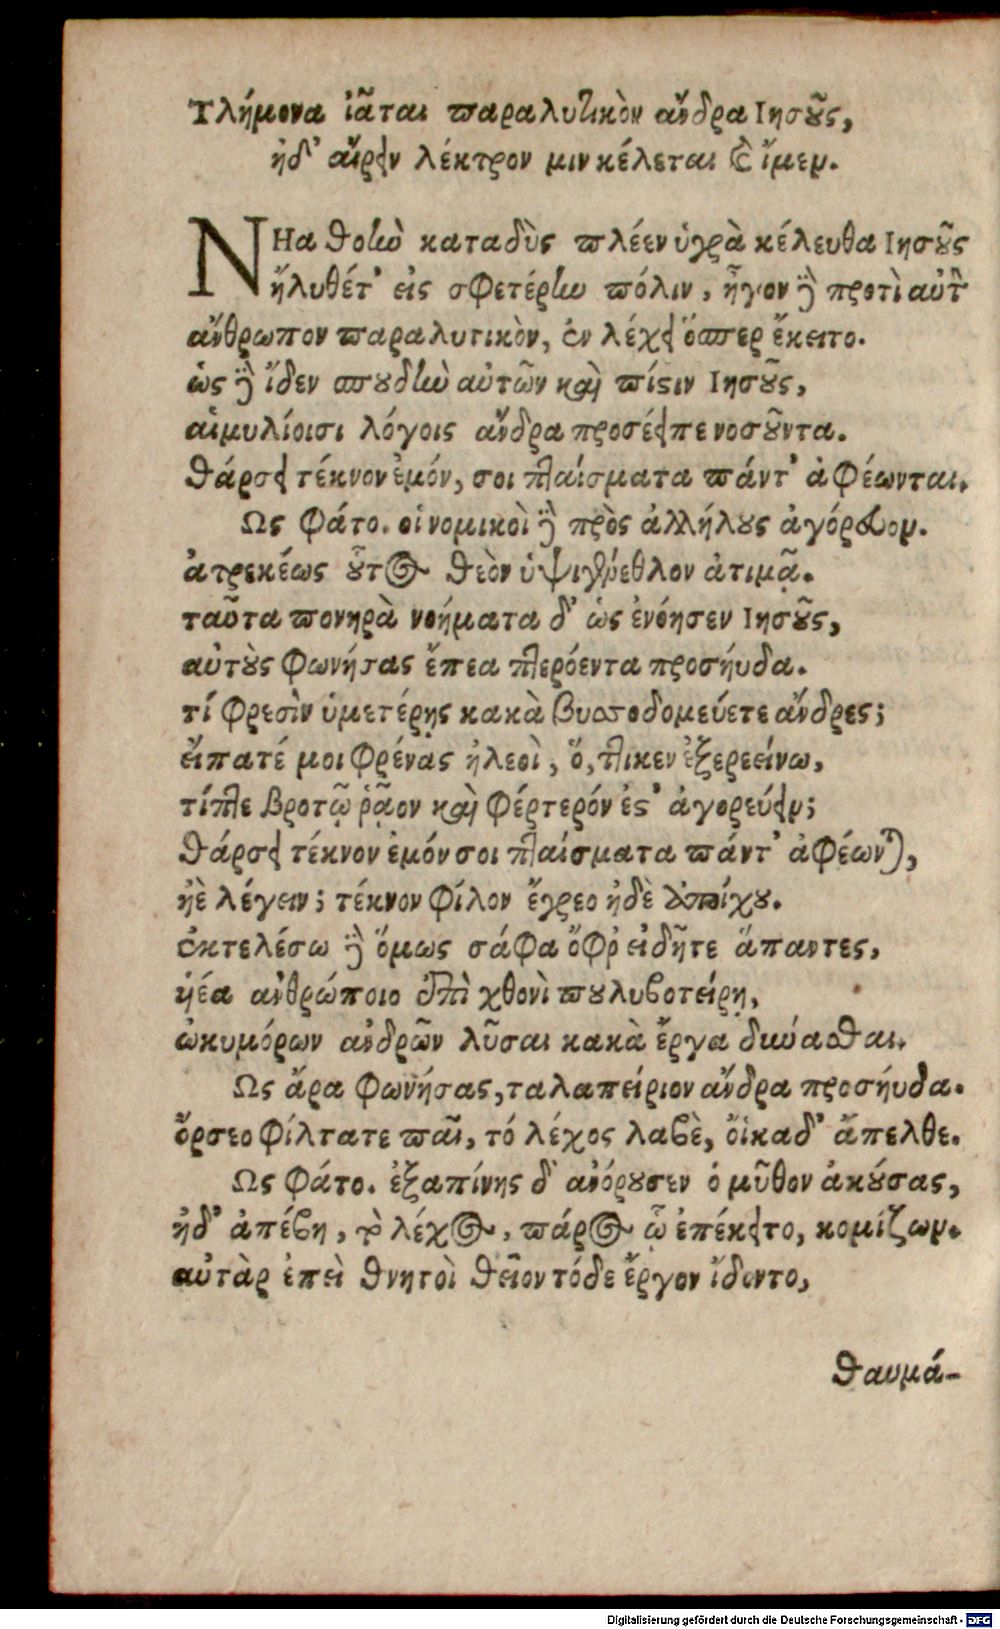 Τλήμονα ἰᾶται παραλυτικὸν ἄνδρα Ιησοῦς,
ἠδ' αἴρειν λέκτρον μιν κέλεται καὶ ἴμεν.
ΝΗα θοὴν καταδὺς πλέεν ὑγρὰ κέλευθα Ιησοῦς
ἤλυθέτ' εἰς σφετέρην πόλιν, ἦγον δὲ προτὶ αὐτὸν
ἄνθρωπον παραλυτικὸν, ἐν λέχει ὅσπερ ἔκειτο.
ὡς δὲ ἴδεν σπουδὴν αὐτῶν καὶ πίστιν Ιησοῦς,
αἱμυλίοισι λόγοις ἄνδρα προσέειπε νοσοῦντα.
θάρσει τέκνον ἐμόν, σοι πταίσματα πάντ' ἀφέωνται.
Ως φάτο. οἱ νομικοὶ δὲ πρὸς ἀλλήλους ἀγόρευον.
ἀτρεκέως οὗτος θεὸν ὑψιγένεθλον ἀτιμᾷ.
ταῦτα πονηρὰ νοήματα δ' ὡς ἐνόησεν Ιησοῦς,
αὐτοὺς φωνήσας ἔπεα πτερόεντα προσήυδα.
τί φρεσὶν ὑμετέρῃς κακὰ βυσσοδομεύετε ἄνδρες;
εἴπατέ μοι φρένας ἠλεοὶ, ὅ,ττικεν ἐξερεείνω,
τίπτε βροτῷ ῥᾷον καὶ φέρτερόν ἐστ' ἀγορεύειν;
θάρσει τέκνον ἐμόν σοι πταίσματα πάντ' ἀφέωνται,
ἠὲ λέγειν; τέκνον φίλον ἔγρεο ἠδὲ ἀποίχου.
ἐκτελέσω δὲ ὅμως σάφα ὄφρ εἰδῆτε ἅπαντες,
ἠέα ἀνθρώποιο ἐπὶ χθονὶ πουλυβοτείρῃ,
ὠκυμόρων ἀνδρῶν λῦσαι κακὰ ἔργα δυνάσθαι.
Ως ἄρα φωνήσας, ταλαπείριον ἄνδρα προσήυδα.
ὄρσεο φίλτατε παῖ, τό λέχος λαβὲ, οἴκαδ' ἄπελθε.
Ως φάτο. ἐξαπίνης δ' ἀνόρουσεν ὁ μῦθον ἀκούσας,
ἠδ' ἀπέβη, τὸ λέχος, πάρος ᾧ ἐπέκειτο, κομίζων.
αὐτὰρ ἐπεὶ θνητοὶ θεῖον τόδε ἔργον ἴδοντο,
θαυμά-
Digitalisierung gefördert durch die Deutsche Forschungsgemeinschaft - DFG